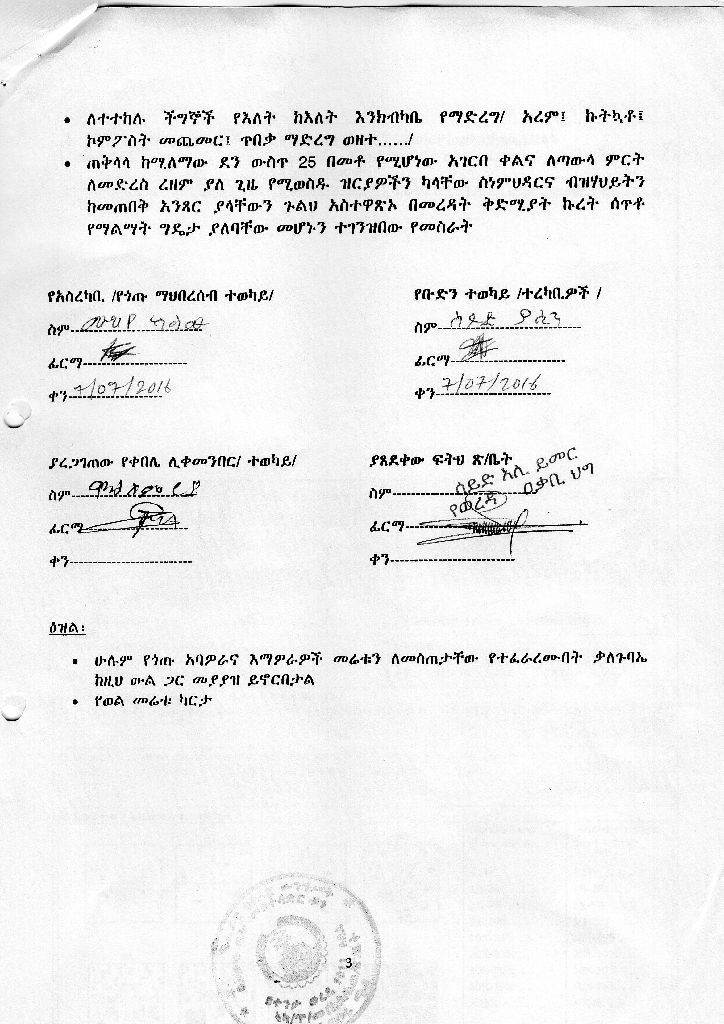 • ለተተከሉ ችግኞች የእለት ከእለት እንክብካቤ የማድረግ/ አረም፤ ኩትኳቶ፤
ኮምፖስት መጨመር፤ ጥበቃ ማድረግ ወዘተ....../
• ጠቅላላ ከሚለማው ደን ውስጥ 25 በመቶ የሚሆነው አገርበ ቀልና ለጣውላ ምርት
ለመድረስ ረዘም ያለ ጊዜ የሚወስዱ ዝርያዎችን ካላቸው ስነምህዳርና ብዝሃህይትን
ከመጠበቅ አንጻር ያላቸውን ጉልህ አስተዋጽኦ በመረዳት ቅድሚያት ኩረት ሰጥቶ
የማልማት ግዴታ ያለባቸው መሆኑን ተገንዝበው የመስራት
የአስረካቢ /የጎጡ ማህበረሰብ ተወካይ/
ስም
ፊርማ
ቀን 7/07/2016
የቡድን ተወካይ /ተረካቢዎች /
ስም ሰይድ ያሲን
ፊርማ
ቀን 7/07/2016
ያረጋገጠው የቀበሌ ሊቀመንበር/ ተወካይ/
ስም
ፊርማ
ቀን
ያጸደቀው ፍትህ ጽ/ቤት
ስም ሰይድ አሊ ይመር
የወረዳ ዐቃቢ ህግ
ፊርማ
ቀን
ዕዝል፡
• ሁሉም የጎጡ አባዎራና እማዎራዎች መሬቱን ለመስጠታቸው የተፈራረሙበት ቃለጉባኤ
ከዚህ ውል ጋር መያያዝ ይኖርበታል
• የወል መሬቱ ካርታ
3